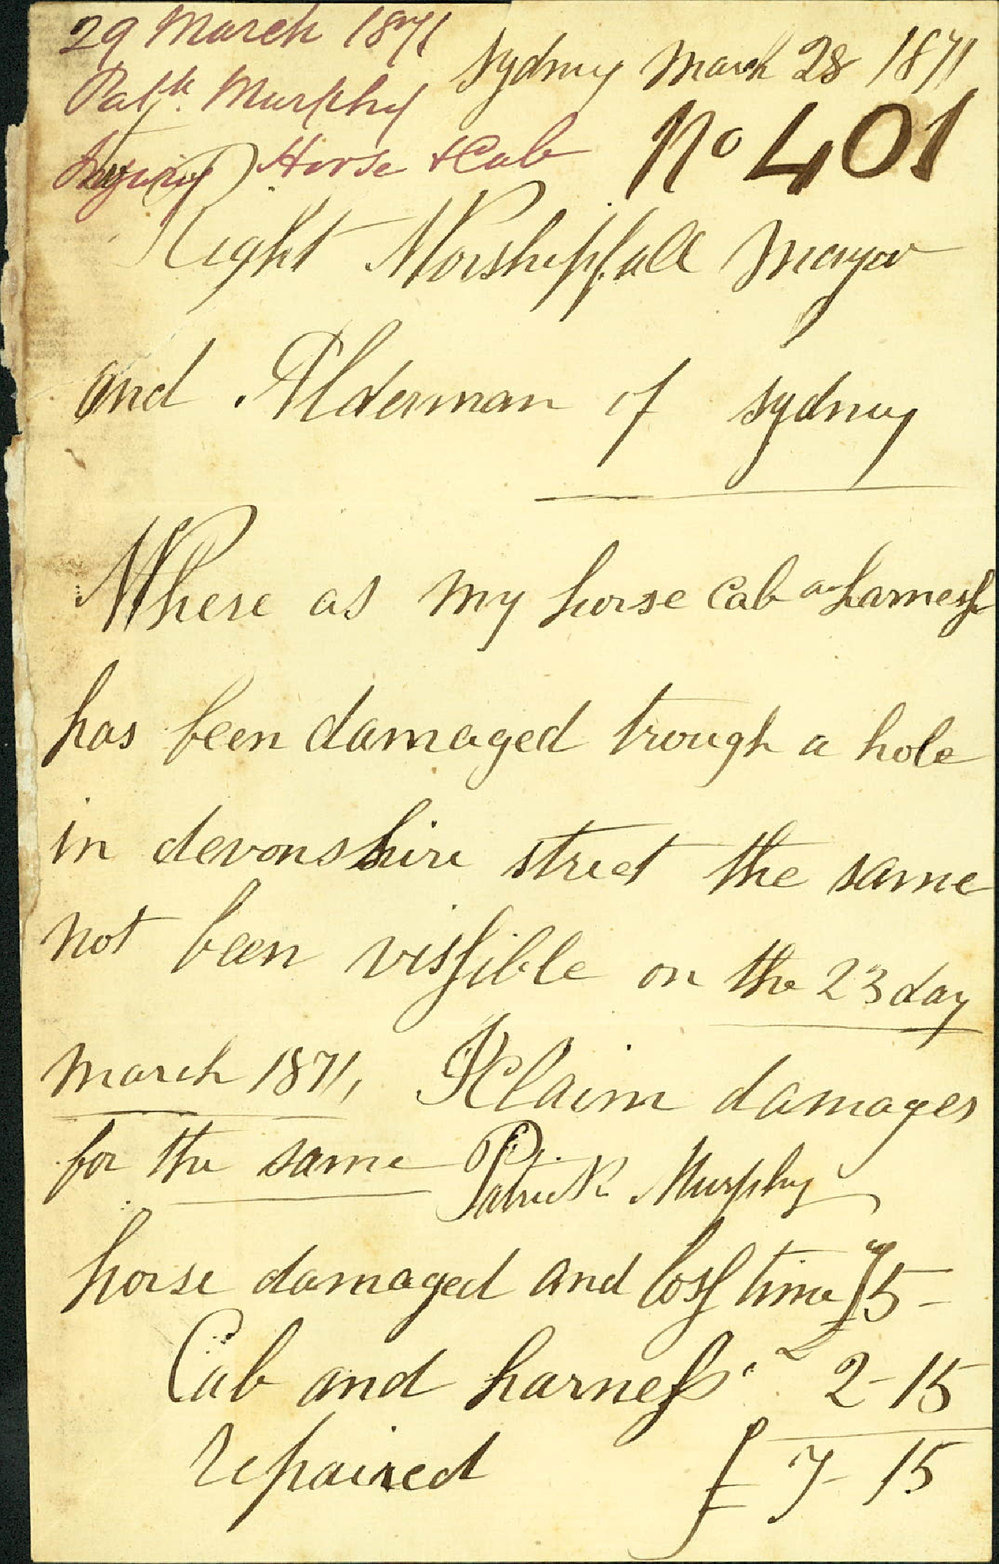 29 March 1871
Patk. Murphy
Injury Horse & Cab
Sydney March 28 1871
No 401
Right Worshipfull Mayor
and Alderman of Sydney
Where as my horse Cab an harness
has been damaged trough a hole
in devonshire street the same
not been vissible on the 23 day
march 1871, I Claim damages
for the same Patrick Murphy
horse damaged and loss time £5 -
Cab and harness 2 - 15
repaired £ 7 - 15